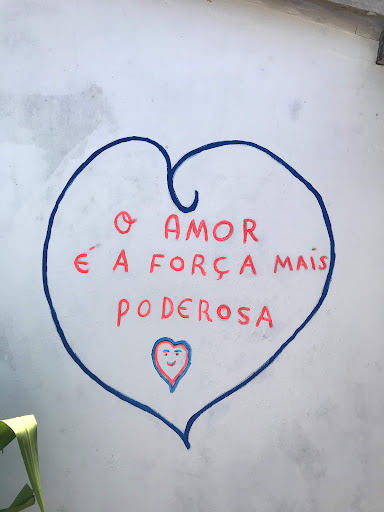 O AMOR
É A FORÇA MAIS
PODEROSA